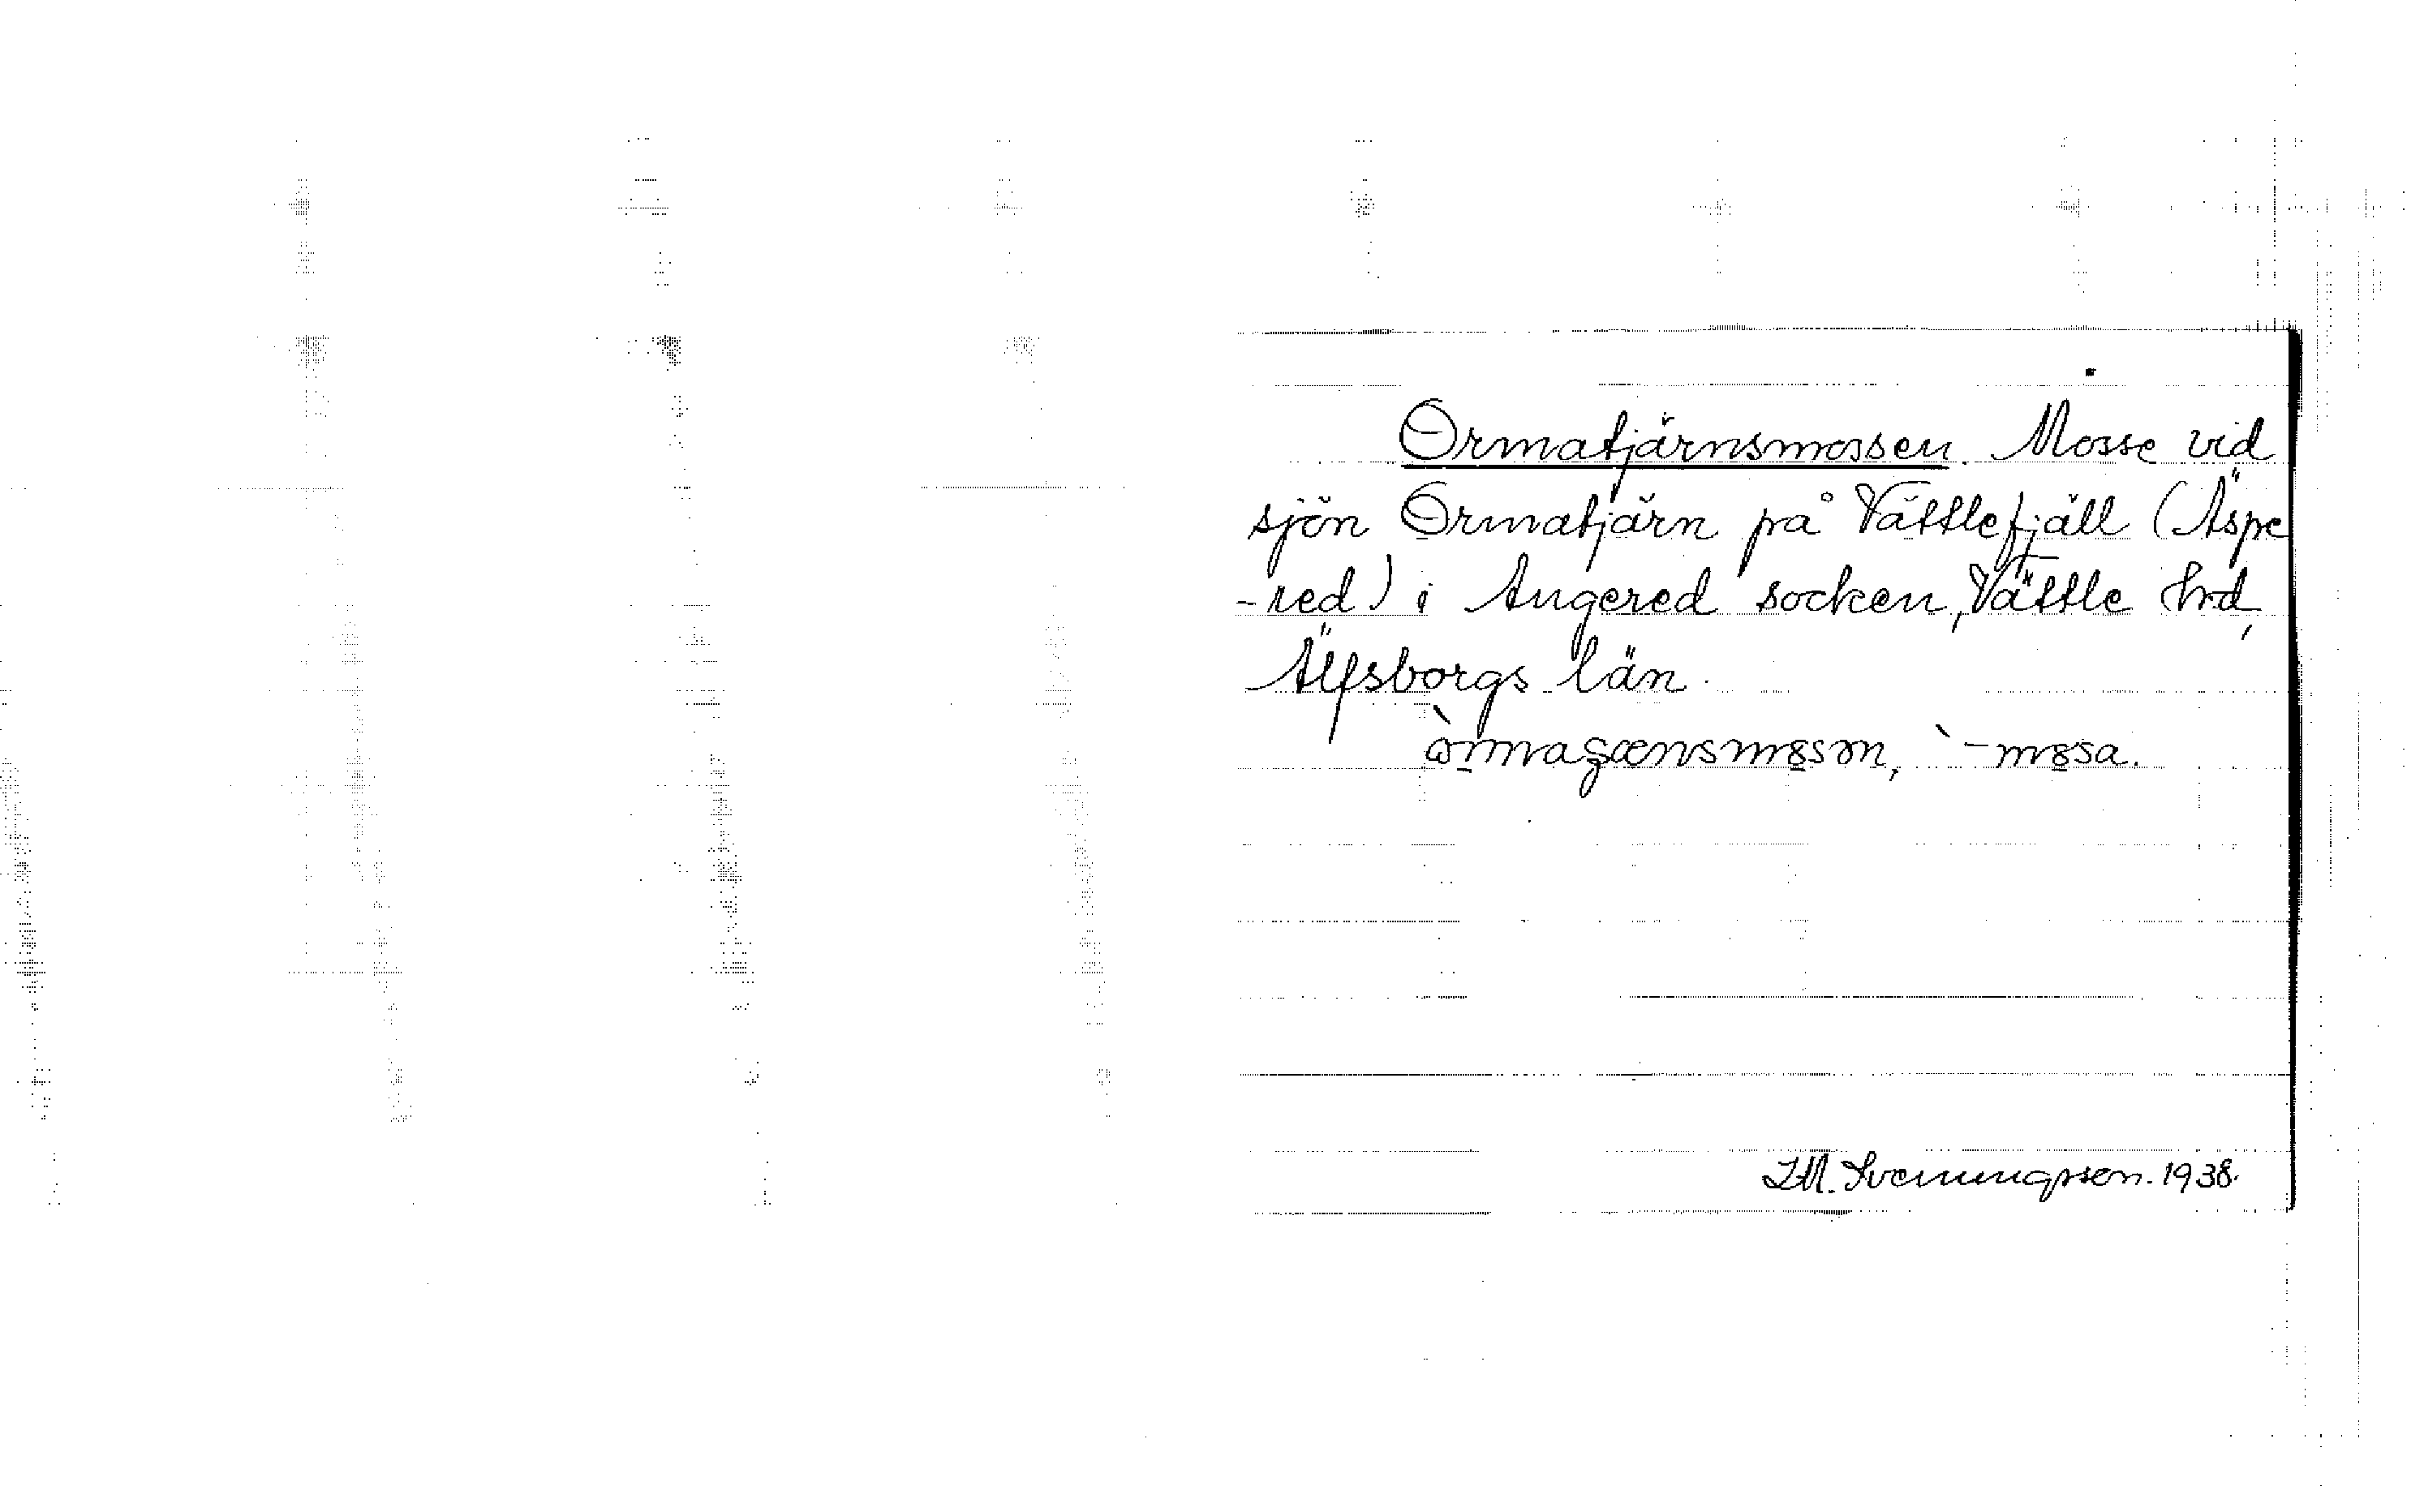 Ormatjärnsmossen. Mosse vid
sjön Ormatjärn på Vättlefjäll (Äspe
-red) i Angered socken, Vättle hrd,
Älfsborgs län.
-mɞsa.
I.M. Svenungsson. 1938.